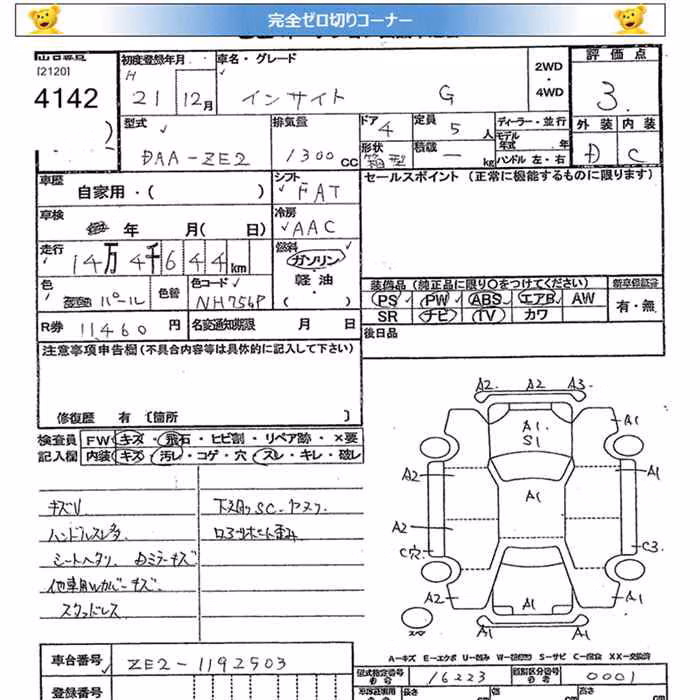 完全ゼロ切りコーナー
[2120]
4142
)
初度登録年月
H
21 12月
車名・グレード
インサイト G
2WD
・
4WD
評価点
3.
型式
DAA-ZE2
排気量
1300cc
ドア
4
定員
5人
形状
積載
— kg
ディーラー・並行
モデル
年式 年
ハンドル 左・右
外装 内装
D C
車歴
自家用・( )
シフト
FAT
セールスポイント(正常に機能するものに限ります)
車検
年 月( 日)
冷房
AAC
走行
14万4千644km
燃料
ガソリン
・
軽油
・
( )
色
パール
色替
色コード
NH756P
装備品(純正品に限り○をつけてください)
新車保証書
PS PW ABS エアB AW
SR ナビ TV カワ
有・無
R券 11460円
名変通知期限 月 日
後日品
注意事項申告欄(不具合内容等は具体的に記入して下さい)
修復歴 有 〔箇所 〕
検査員
記入欄
FW キズ・飛石・ヒビ割・リペア跡・×要
内装 キズ・汚レ・コゲ・穴・スレ・キレ・破レ
キズU
ハンドルスレ多
シートヘタリ Dミラーキズ
他車用Wカバーキズ
スタッドレス
A2 A2 A3
A1
S1
A1
A2
A1
A1
A2
C穴
C3
A2
A1
A1
A1
A1
スペア
A-キズ E-エクボ U-凹み W-補修跡 S-サビ C-腐食 XX-交換済
車台番号
ZE2-1192503
型式指定番号
16223
類別区分番号
0001
登録番号
長さ
幅
高さ